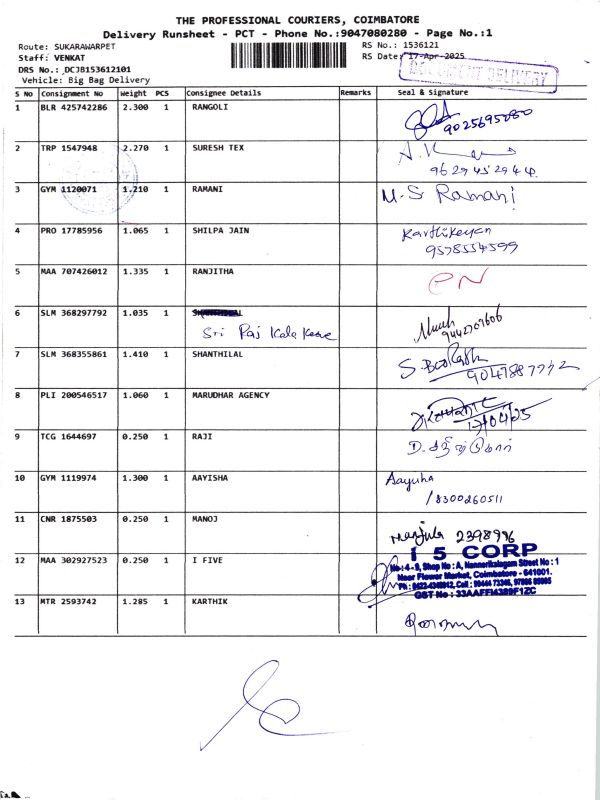 THE PROFESSIONAL COURIERS, COIMBATORE
Delivery Runsheet - PCT - Phone No.:9047080280 - Page No.:1
Route: SUKARAWARPET RS No.: 1536121
Staff: VENKAT RS Date: 17-Apr-2025
DRS No.: DCJB153612101
Vehicle: Big Bag Delivery
DOCUMENT DELIVERY
S No Consignment No Weight PCS Consignee Details Remarks Seal & Signature
1 BLR 425742286 2.300 1 RANGOLI
9025695080
2 TRP 1547948 2.270 1 SURESH TEX
9629452944
3 GYM 1120071 1.210 1 RAMANI M.S Ramani
4 PRO 17785956 1.065 1 SHILPA JAIN Karthikeyan
9578554599
5 MAA 707426012 1.335 1 RANJITHA PN
6 SLM 368297792 1.035 1
Sri Raj Kala
9442707606
7 SLM 368355861 1.410 1 SHANTHILAL
9047887772
8 PLI 200546517 1.060 1 MARUDHAR AGENCY
17/04/25
9 TCG 1644697 0.250 1 RAJI
10 GYM 1119974 1.300 1 AAYISHA Aayisha
/8300260511
11 CNR 1875503 0.250 1 MANOJ Manjula 2398996
12 MAA 302927523 0.250 1 I FIVE I 5 CORP
No: 4-9, Shop No : A, Nannerikalagam Street No : 1
Near Flower Market, Coimbatore - 641001.
GST No : 33AAFFI4389F1ZC
13 MTR 2593742 1.285 1 KARTHIK